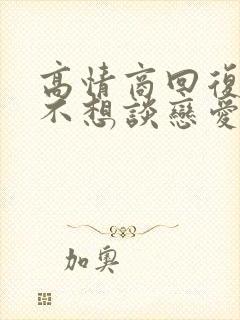 高情商回復
不想談戀愛
加奧